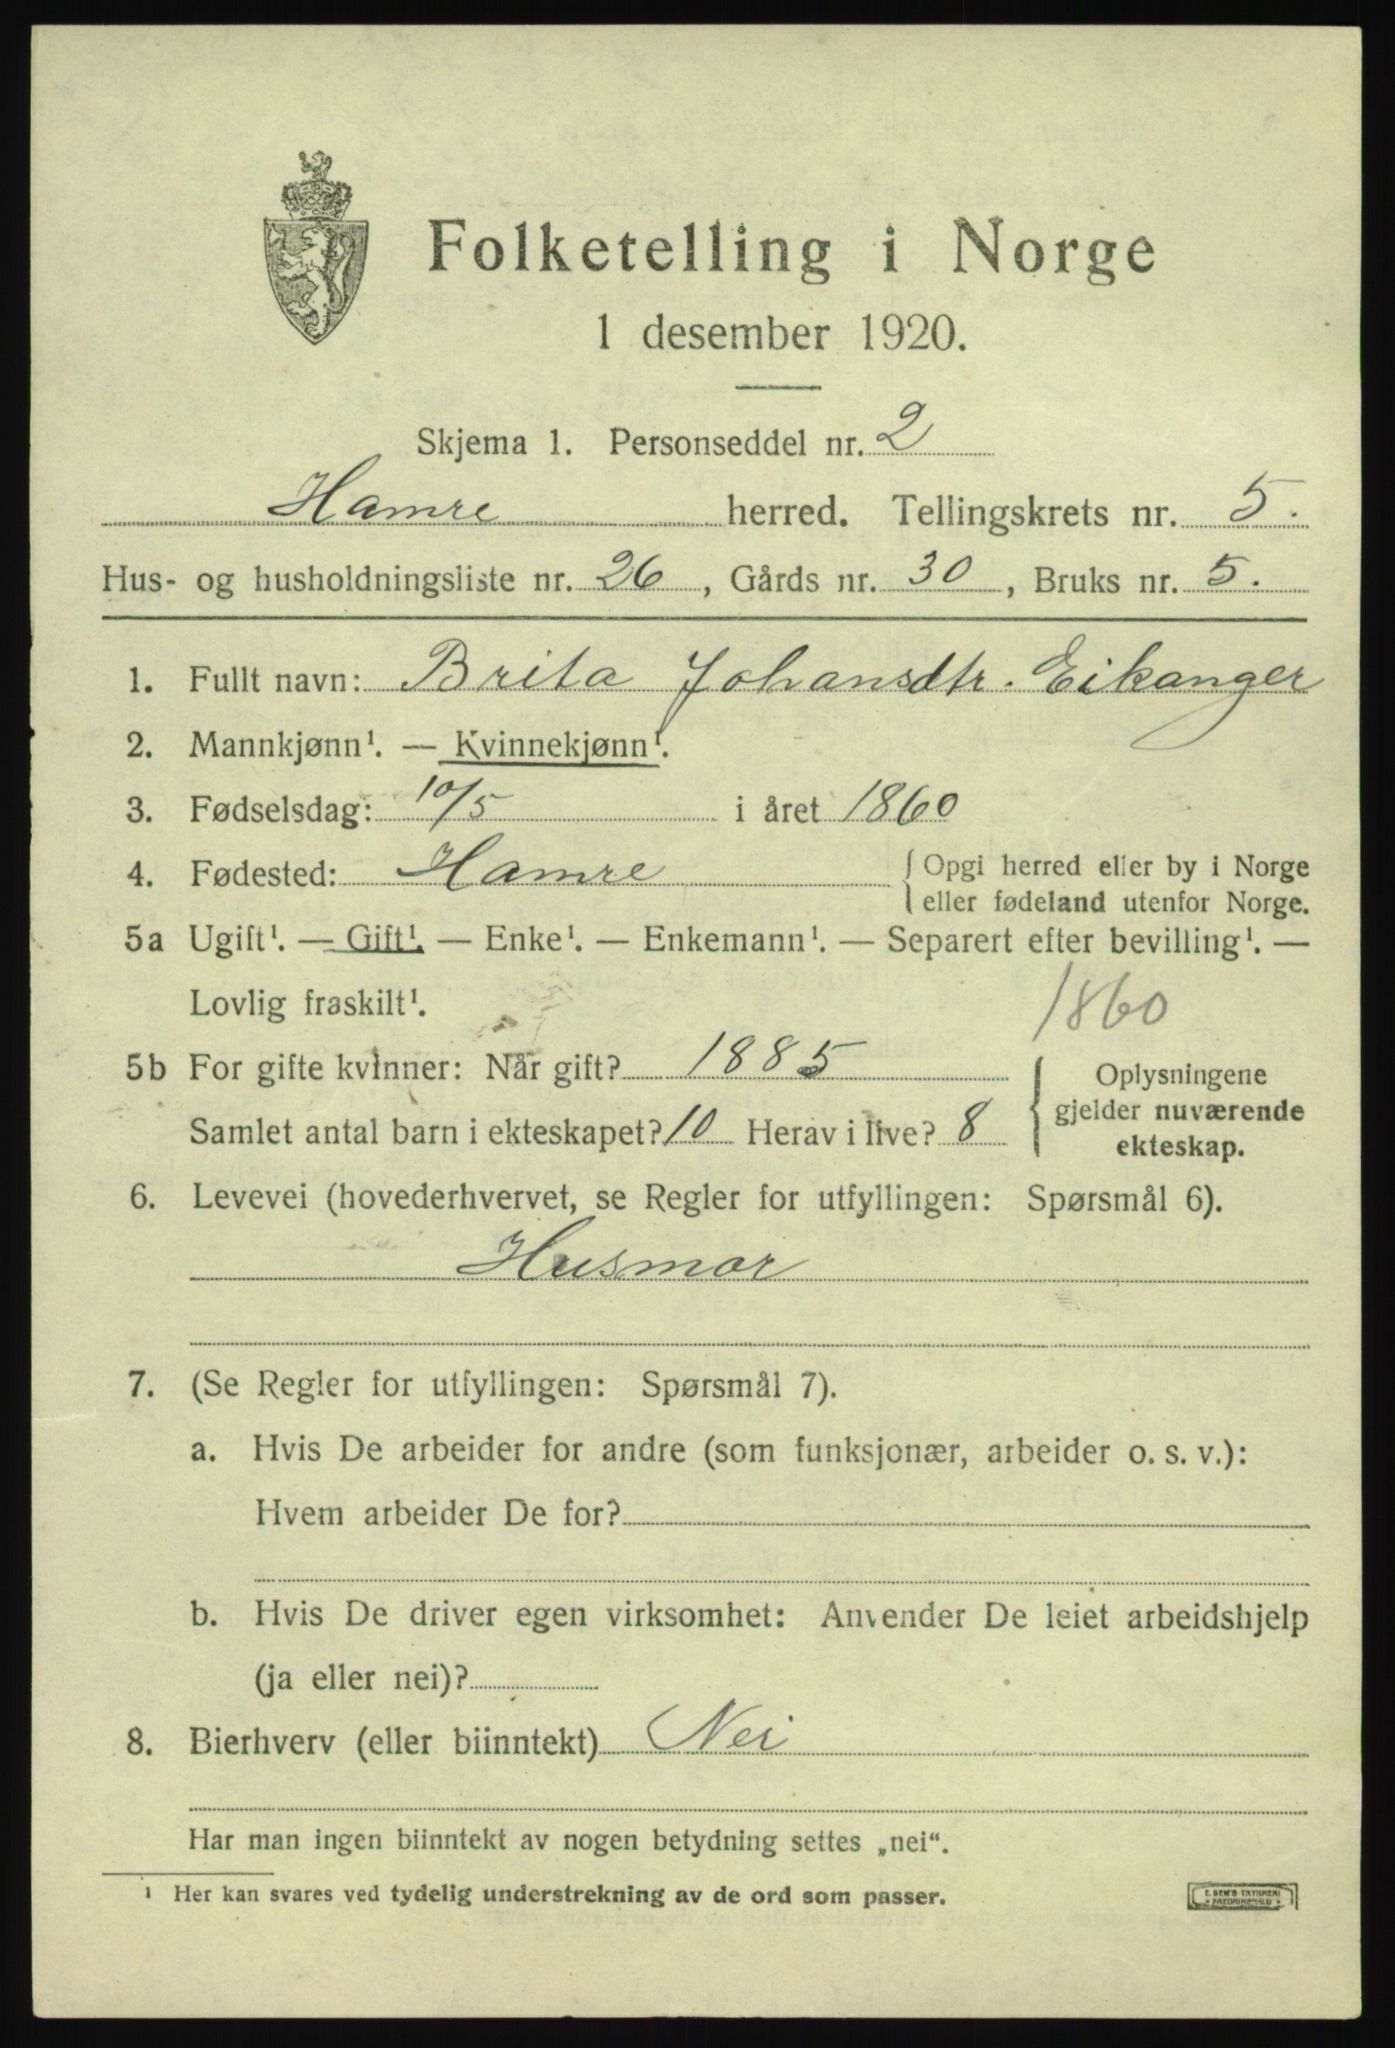 Folketelling i Norge
1 desember 1920.
Skjema 1. Personseddel nr. 2
Hamre herred. Tellingskrets nr. 5.
Hus- og husholdningsliste nr. 26, Gårds nr. 30, Bruks nr. 5.
1. Fullt navn: Brita Johansdtr. Eikanger
2. Mannkjønn¹. — Kvinnekjønn¹.
3. Fødselsdag: 10/5 i året 1860
4. Fødested: Hamre { Opgi herred eller by i Norge
eller fødeland utenfor Norge.
5a Ugift¹. — Gift¹. — Enke¹. — Enkemann¹. — Separert efter bevilling¹. —
Lovlig fraskilt¹. 1860
5b For gifte kvinner: Når gift? 1885
Samlet antal barn i ekteskapet? 10 Herav i live? 8
{ Oplysningene
gjelder nuværende
ekteskap.
6. Levevei (hovederhvervet, se Regler for utfyllingen: Spørsmål 6).
Husmor
7. (Se Regler for utfyllingen: Spørsmål 7).
a. Hvis De arbeider for andre (som funksjonær, arbeider o. s. v.):
Hvem arbeider De for?
b. Hvis De driver egen virksomhet: Anvender De leiet arbeidshjelp
(ja eller nei)?
8. Bierhverv (eller biinntekt) Nei
Har man ingen biinntekt av nogen betydning settes „nei“.
¹ Her kan svares ved tydelig understrekning av de ord som passer.
E. SEM'S TRYKKERI
FREDRIKSHALD